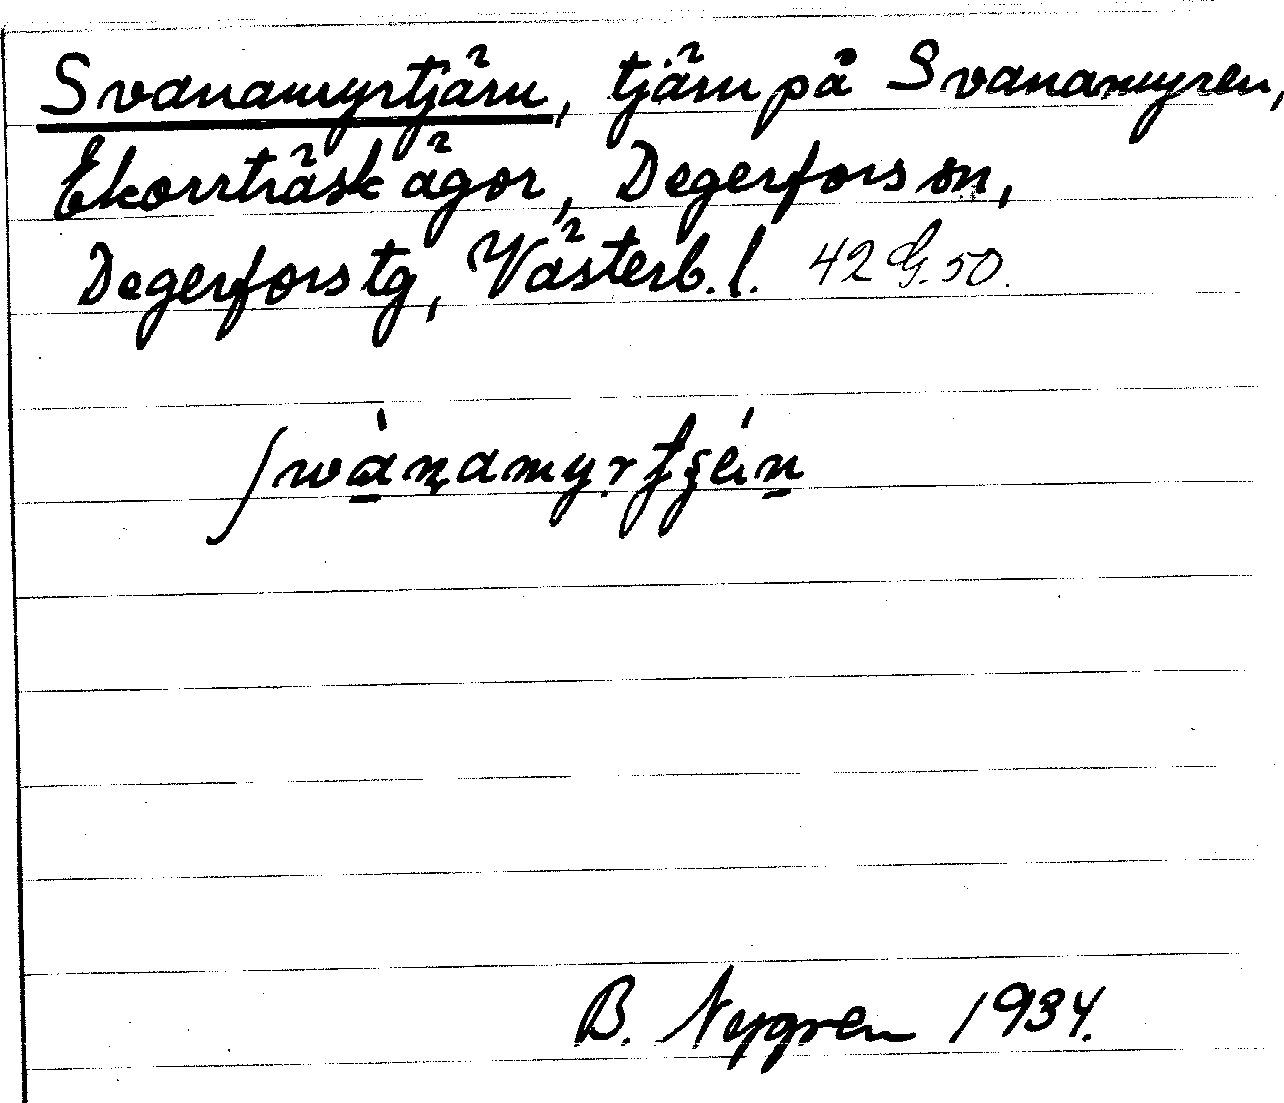 Svanamyrtjärn, tjärn på Svanamyren,
Ekorrträsk ägor, Degerfors sn,
Degerfors tg, Västerb. l. 42 G. 50.
B. Nygren 1934.